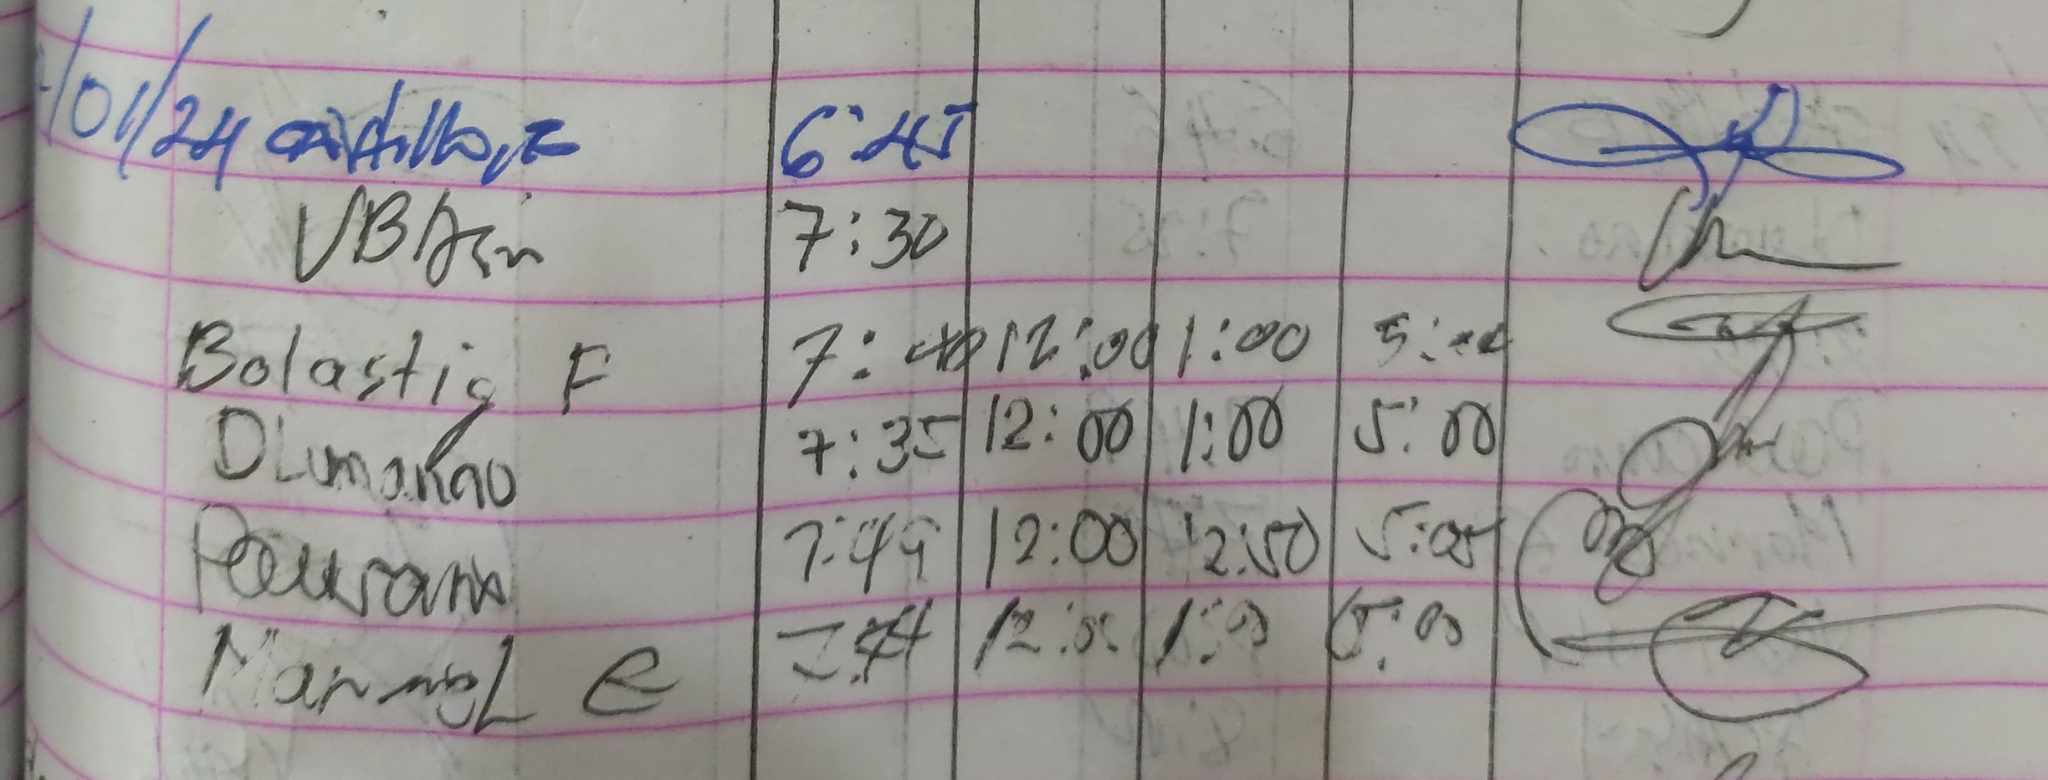 /01/24 castillo, E 6:45
VBAsin 7:30
Bolastig F 7:40 12:00 1:00 5:00
DLumanao 7:35 12:00 1:00 5:00
7:49 12:00 12:50 5:05
E 7:44 12:00 1:00 5:00